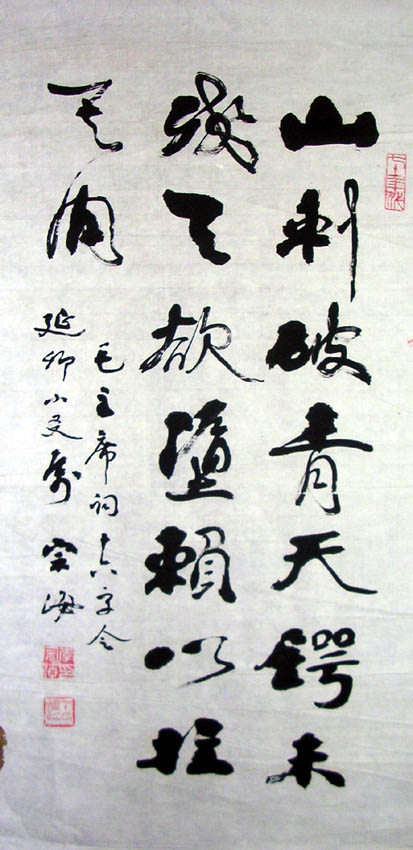 山刺破青天鍔未
残天欲墮賴以拄
其间
毛主席词十六字令
延 小友 宗海